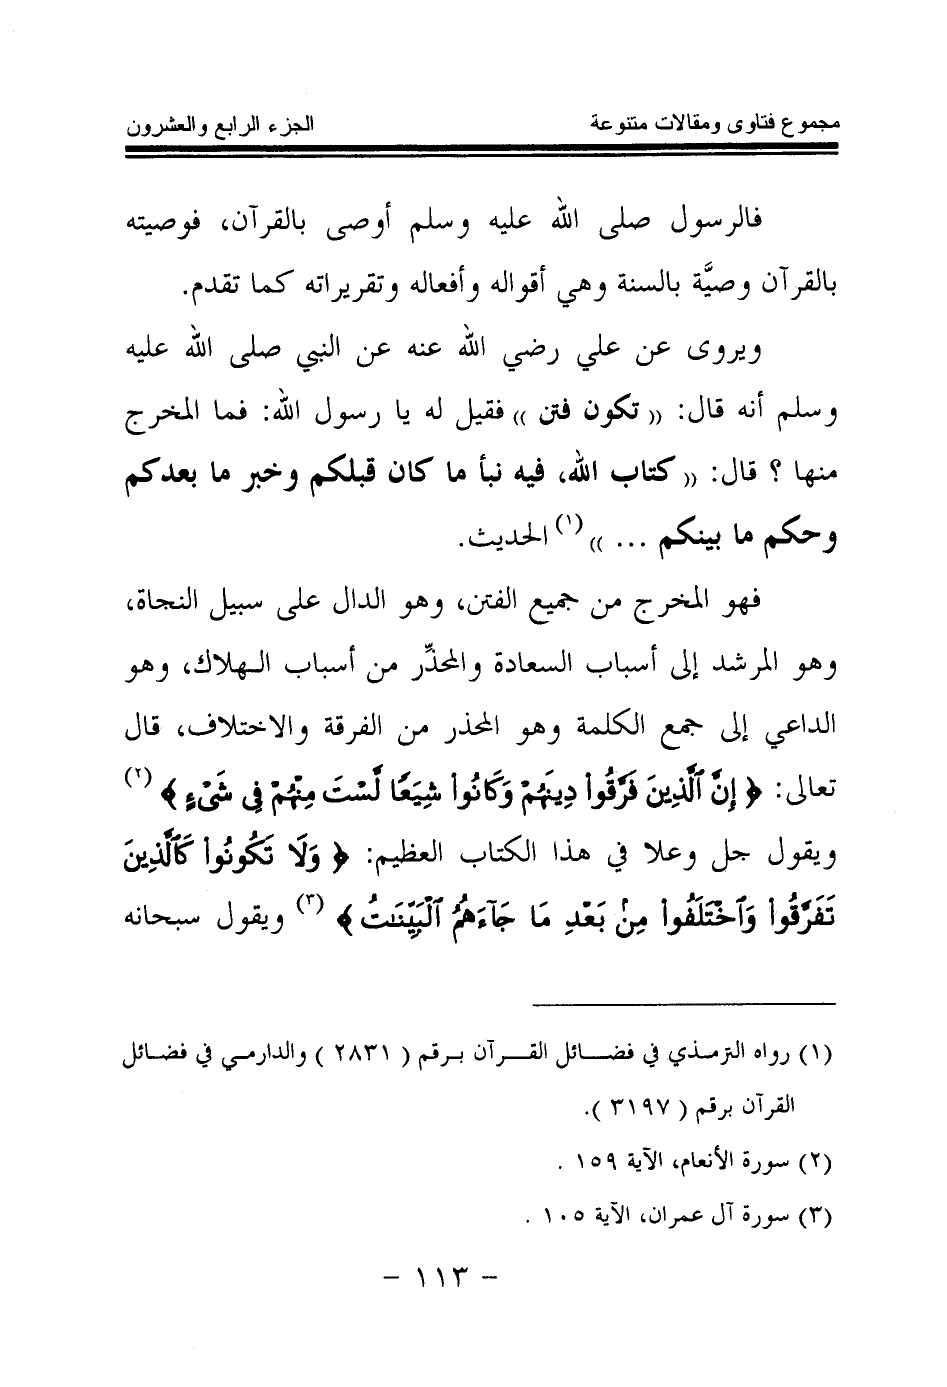 مجموع فتاوى ومقالات متنوعة الجزء الرابع والعشرون
فالرسول صلى الله عليه وسلم أوصى بالقرآن، فوصيته
بالقرآن وصيَّة بالسنة وهي أقواله وأفعاله وتقريراته كما تقدم.
ويروى عن علي رضي الله عنه عن النبي صلى الله عليه
وسلم أنه قال: (( تكون فتن )) فقيل له يا رسول الله: فما المخرج
منها ؟ قال: (( كتاب الله، فيه نبأ ما كان قبلكم وخبر ما بعدكم
وحكم ما بينكم ... )) (١) الحديث.
فهو المخرج من جميع الفتن، وهو الدال على سبيل النجاة،
وهو المرشد إلى أسباب السعادة والمحذِّر من أسباب الهلاك، وهو
الداعي إلى جمع الكلمة وهو المحذر من الفرقة والاختلاف، قال
تعالى: ﴿ إِنَّ ٱلَّذِينَ فَرَّقُوا۟ دِينَهُمْ وَكَانُوا۟ شِيَعًا لَّسْتَ مِنْهُمْ فِى شَىْءٍ ﴾ (٢)
ويقول جل وعلا في هذا الكتاب العظيم: ﴿ وَلَا تَكُونُوا۟ كَٱلَّذِينَ
تَفَرَّقُوا۟ وَٱخْتَلَفُوا۟ مِنۢ بَعْدِ مَا جَآءَهُمُ ٱلْبَيِّنَـٰتُ ﴾ (٣) ويقول سبحانه
(١) رواه الترمذي في فضائل القرآن برقم ( ٢٨٣١ ) والدارمي في فضائل
القرآن برقم ( ٣١٩٧ ).
(٢) سورة الأنعام، الآية ١٥٩ .
(٣) سورة آل عمران، الآية ١٠٥ .
- ١١٣ -